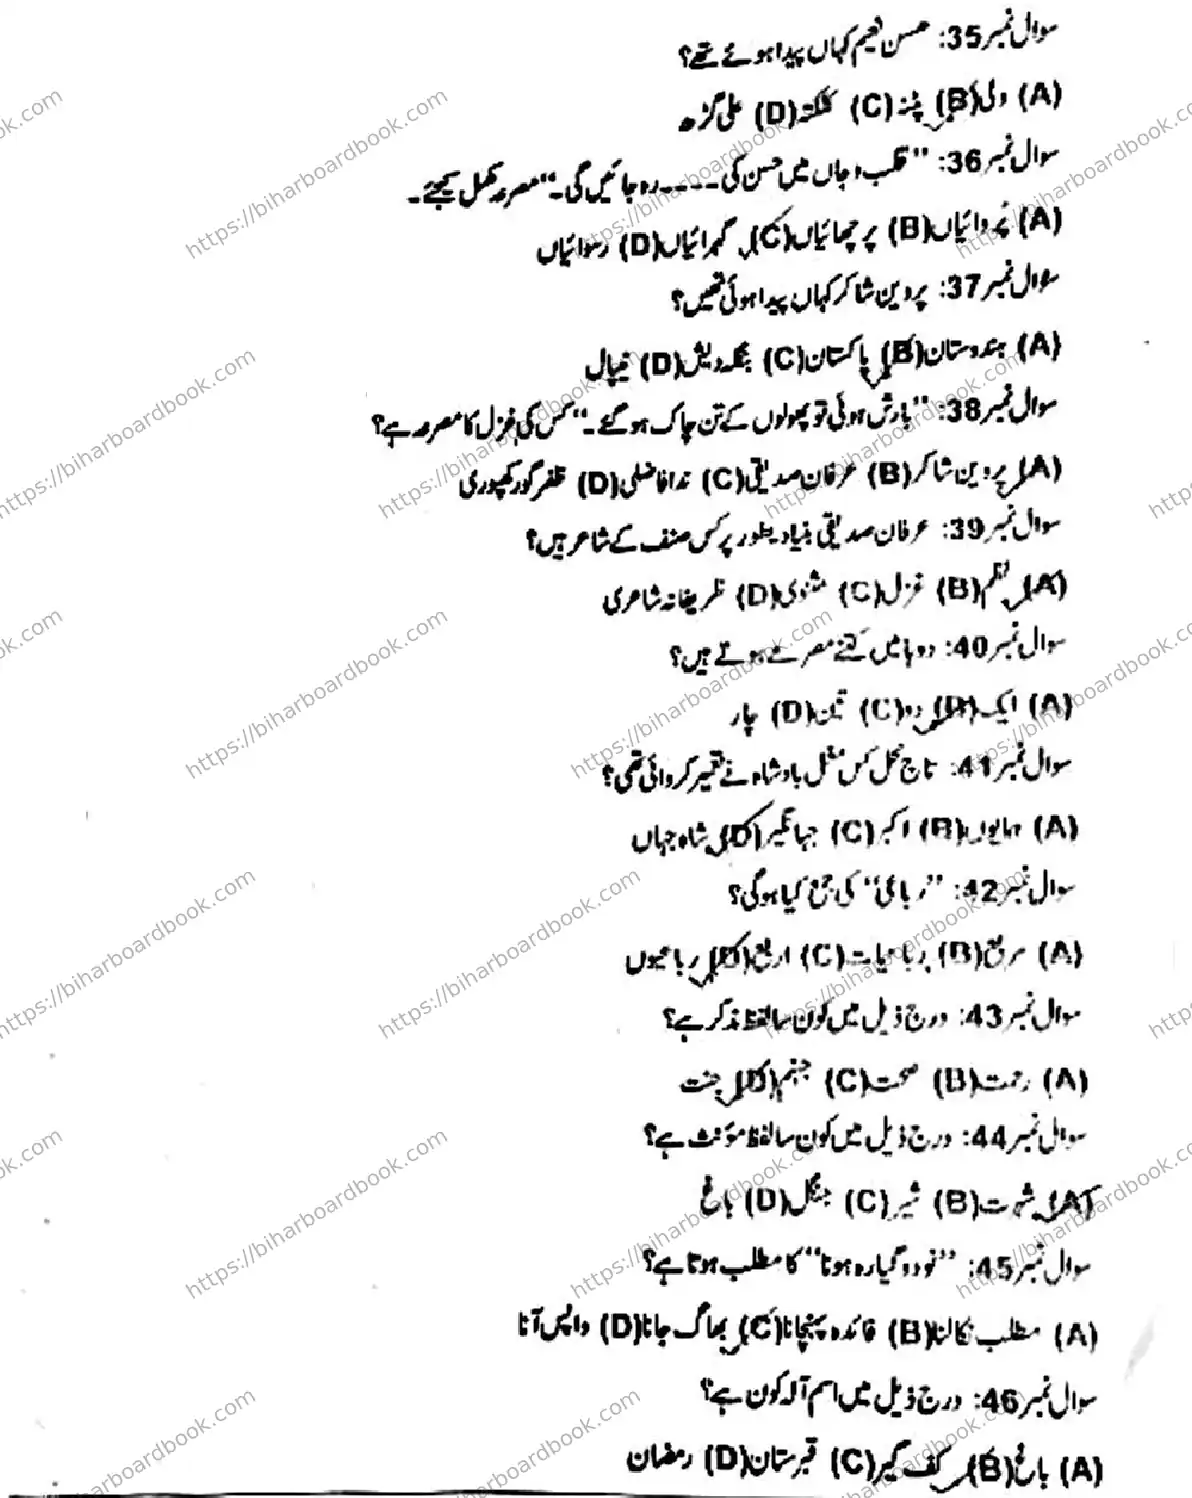 سوال نمبر 35: حسن نعیم کہاں پیدا ہوئے تھے؟
(A) دلی (B) پٹنہ (C) کلکتہ (D) علی گڑھ
سوال نمبر 36: "قلب و جاں میں حسن کی ---- رہ جائیں گی۔" مصرعہ مکمل کیجئے۔
(A) پروائیاں (B) پرچھائیاں (C) گہرائیاں (D) رسوائیاں
سوال نمبر 37: پروین شاکر کہاں پیدا ہوئی تھیں؟
(A) ہندوستان (B) پاکستان (C) بنگلہ دیش (D) نیپال
سوال نمبر 38: "بارش ہوئی تو پھولوں کے تن چاک ہو گئے۔" کس کی غزل کا مصرعہ ہے؟
(A) پروین شاکر (B) عرفان صدیقی (C) ندا فاضلی (D) ظفر گورکھپوری
سوال نمبر 39: عرفان صدیقی بنیادی طور پر کس صنف کے شاعر ہیں؟
(A) نظم (B) غزل (C) مثنوی (D) ظریفانہ شاعری
سوال نمبر 40: دوہا میں کتنے مصرعے ہوتے ہیں؟
(A) ایک (B) دو (C) تین (D) چار
سوال نمبر 41: تاج محل کس مغل بادشاہ نے تعمیر کروائی تھی؟
(A) ہمایوں (B) اکبر (C) جہانگیر (D) شاہ جہاں
سوال نمبر 42: "رباعی" کی جمع کیا ہوگی؟
(A) مربع (B) رباعیات (C) اربع (D) رباعیوں
سوال نمبر 43: درج ذیل میں کون سا لفظ مذکر ہے؟
(A) رحمت (B) صحت (C) جہنم (D) جنت
سوال نمبر 44: درج ذیل میں کون سا لفظ مؤنث ہے؟
(A) شہرت (B) شیر (C) جنگل (D) باغ
سوال نمبر 45: "نو دو گیارہ ہونا" کا مطلب ہوتا ہے؟
(A) مطلب نکالنا (B) فائدہ پہنچانا (C) بھاگ جانا (D) واپس آنا
سوال نمبر 46: درج ذیل میں اسم آلہ کون ہے؟
(A) باغ (B) کف گیر (C) قبرستان (D) رمضان
https://biharboardbook.com